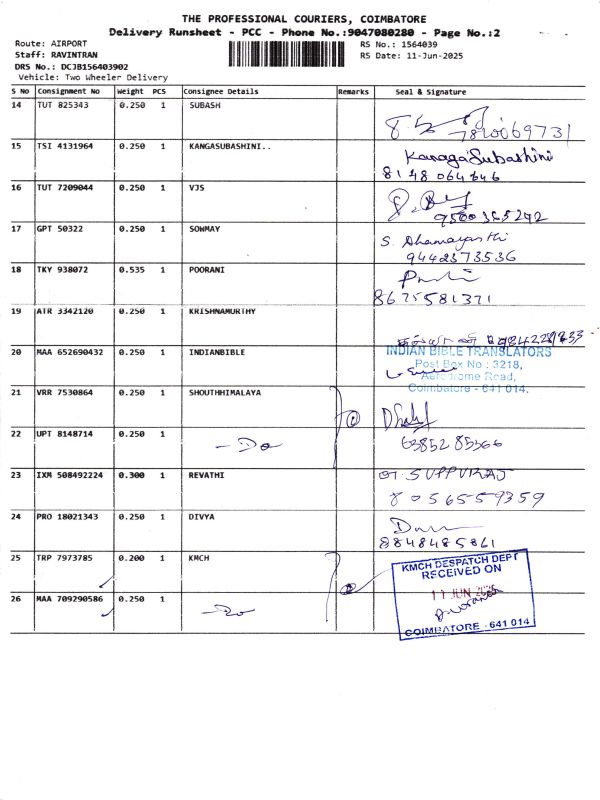 THE PROFESSIONAL COURIERS, COIMBATORE
Delivery Runsheet - PCC - Phone No.:9047080280 - Page No.:2
Route: AIRPORT RS No.: 1564039
Staff: RAVINTRAN RS Date: 11-Jun-2025
DRS No.: DCJB156403902
Vehicle: Two Wheeler Delivery
S No Consignment No Weight PCS Consignee Details Remarks Seal & Signature
14 TUT 825343 0.250 1 SUBASH
7810069731
15 TSI 4131964 0.250 1 KANGASUBASHINI..
KanagaSubashini
8148064646
16 TUT 7209044 0.250 1 VJS
9500365242
17 GPT 50322 0.250 1 SOWMAY
S. Dhamayanthi
9442373536
18 TKY 938072 0.535 1 POORANI
8675581371
19 ATR 3342120 0.250 1 KRISHNAMURTHY
20 MAA 652690432 0.250 1 INDIANBIBLE
INDIAN BIBLE TRANSLATORS
Post Box No : 3218,
Aerodrome Road,
Coimbatore - 641 014.
21 VRR 7530864 0.250 1 SHOUTHHIMALAYA
22 UPT 8148714 0.250 1 - Do
6385285366
23 IXM 508492224 0.300 1 REVATHI
SUPPURAJ
8056559359
24 PRO 18021343 0.250 1 DIVYA
8848485861
25 TRP 7973785 0.200 1 KMCH
KMCH DESPATCH DEPT
RECEIVED ON
11 JUN 2025
COIMBATORE - 641 014
26 MAA 709290586 0.250 1 - Do